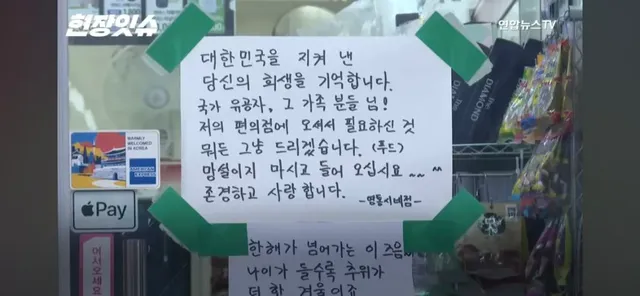 현장잇슈
연합뉴스TV
대한민국을 지켜 낸
당신의 희생을 기억합니다.
국가 유공자, 그 가족 분들 님!
저의 편의점에 오셔서 필요하신 것
뭐든 그냥 드리겠습니다. (푸드)
망설이지 마시고 들어 오십시요~~ ^^
존경하고 사랑합니다.
WARMLY WELCOMED IN KOREA
AMERICAN EXPRESS
Pay
어서오세요
DIAMOND
한해가 넘어가는 이 즈음
나이가 들수록 추위가
더 한 겨울이죠